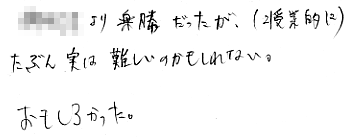 より楽勝だったが、(授業的に)
たぶん実は難しいのかもしれない。
おもしろかった。